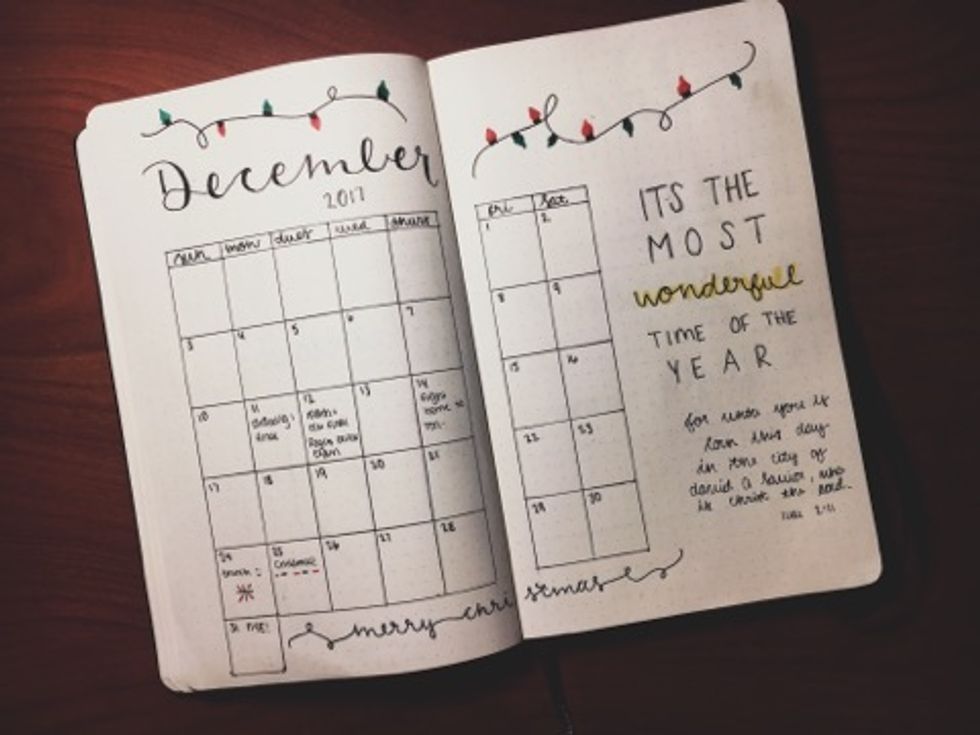 December
2017
sun mon tues wed thurs fri sat
1 2
3 4 5 6 7 8 9
10 11 12 13 14 15 16
finals
17 18 19 20 21 22 23
24 25 26 27 28 29 30
Christmas
31
merry christmas
ITS THE
MOST
wonderful
TIME OF THE
YEAR
for unto you is
born this day
in the city of
david a savior, who
is christ the lord.
luke 2:11